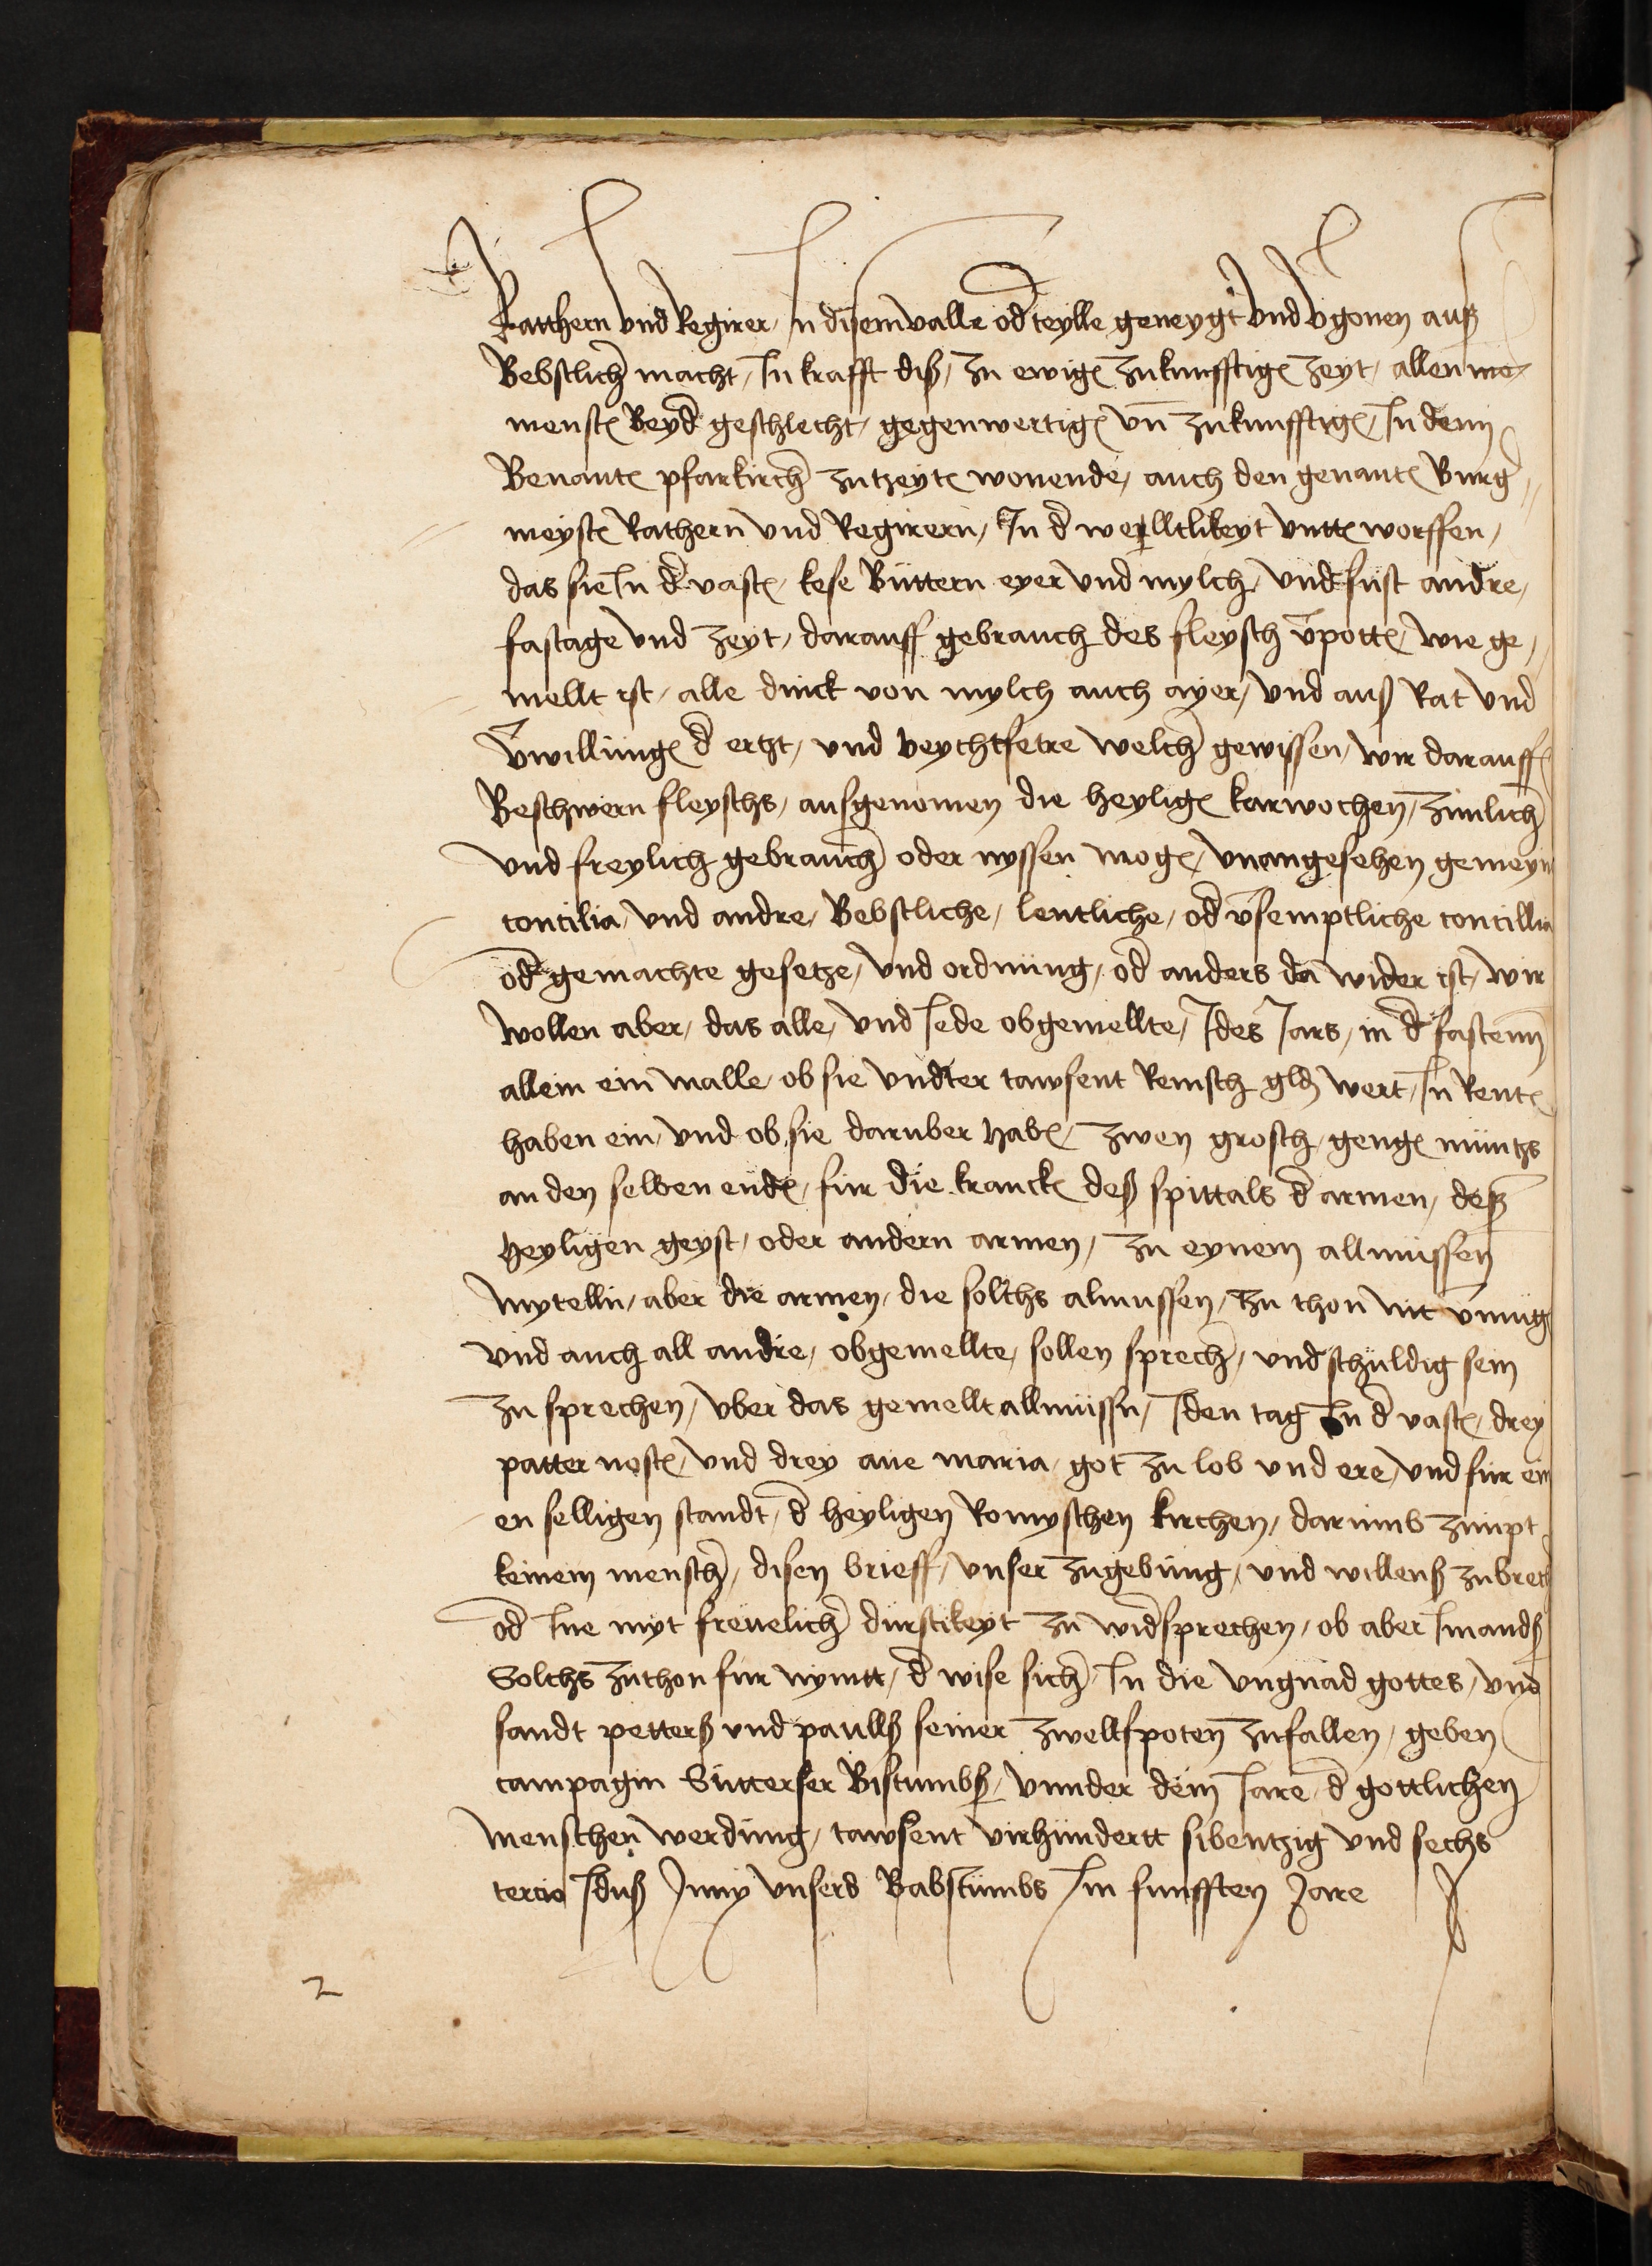 Ratthern und Regirer, In disem valle od teylle geneygt und vgonen auß
Bebstlich macht, In krafft diß, zu ewige zukunfftige zeyt, allen me
menste Beyd geschlecht, gegenwertige vn zukunfftige, In dem
Benante pfarkirch zutzeyte wonende, auch den genante Burg
meyste Rathern und Regirern, In d werlltlikeyt untte worffen,
das sie In d vaste, kese Buttern eyer und mylch, und sust andre,
fastage und zeyt, darauff gebrauch des fleysch vpotte, wie ge,
mellt ist, alle dinck von mylch auch ayer, und auß Rat und
vwillunge d ertzt, und beychtfetre welch gewissen, wir darauff
Beschwern fleyschs, ausgenomen die heylige karwochen, zimlich
und freylich gebrauch oder nyssen moge, unangesehen gemeyn
concilia, und andre, Bebstliche, lentliche, od vsemptliche concillia
od gemachte gesetze, und ordnung, od anders da wider ist, wir
wollen aber, das alle, und Iede obgemellte, Ides Iars, in d fastenn
allein ein malle, ob sie undter tawsent Reinsch gld wert, In Rente
haben ein, und ob sie daruber habe, zwen grosch, genge muntzs
an den selben ende, fur die krancke deß spittals d armen, deß
heyligen geyst, oder andern armen, zu eynem allmussen
mytelln, aber die armen, die solchs almussen, zu thon nit vmug
und auch all andre, obgemellte, sollen sprech, und schuldig sein
zu sprechen, uber das gemellt allmussn, Iden tag In d vaste, drey
patter noste, und drey ave maria, got zu lob und ere, und fur ein
en selligen standt, d heyligen Romyschen kirchen, darumb zimpt
keinem mensch, disen brieff, unser zugebung, und willenß zubrech
od Ine myt frevelich durstikeyt zu widsprechen, ob aber Imandß
Solchs zuthon fur nymtt, d wise sich, In die ungnad gottes, und
sandt petterß und paullß seiner zwellfpoten zufallen, geben
campagin Sutterser Bistumbß, unnder dem Iare, d gottlichen
menschen werdung, tawsent virhundertt sibentzig und sechs
tercio Iduß Juny unsers Babstumbs Im funfften Jare
2